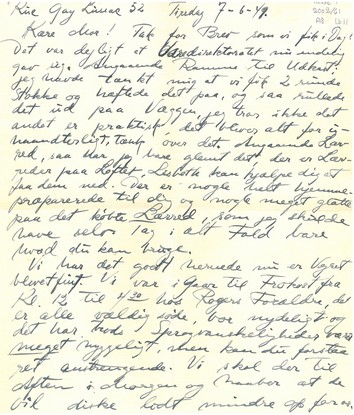 Rue Gay Lussac 52 Tirsdag 7-6-49.
Kære Mor! Tak for Brev som vi fik i Dag.
Det var dejligt at direktoratet nu endelig
gav sig. Angaaende Ramme til Udkast:
jeg havde tænkt mig at vi fik 2 runde
Stokke og hæftede det paa, og saa rullede
det ud paa Væggen, jeg tror ikke det
andet er praktisk, det bliver alt for
haandterligt, tænk over det. Angaaende Lær-
red, saa har jeg bare glemt det, der er Lær-
reder paa Loftet, Lisbeth kan hjælpe dig at
faa dem ned. Der er nogle helt hjemme-
præparerede til dig og nogle meget glatte
paa det købte Lærred, som jeg skulde
have selv tag i alt Fald bare
hvad du kan bringe.
Vi har det godt hernede nu er Vejret
blevet fint. Vi var i Gaar til Frokost fra
Kl. 12 til 4.30 hos Rogers Forældre, de
er alle vældig søde, bor nydeligt og
det har trods Sprogvanskeligheder været
meget hyggeligt, men kan du forstaa
ret anstrengende. Vi skal der til
Aften i Morgen og haaber at de
vil diske lidt mindre op for os